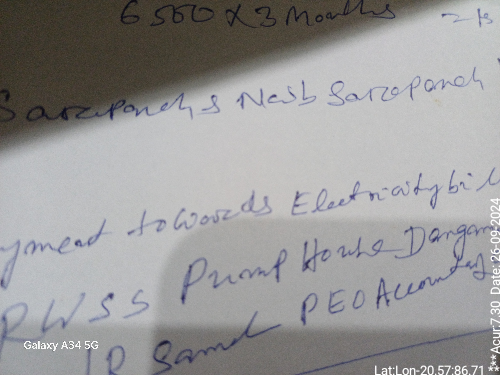 6500 X 3 Months
Sarapanch & Naib Sarapanch
yment towards Electricity bill
RWSS Pump House
PEO Account
Galaxy A34 5G
Lat:Lon-20.57:86.71
***Acur:7.30 Date: 26-09-2024